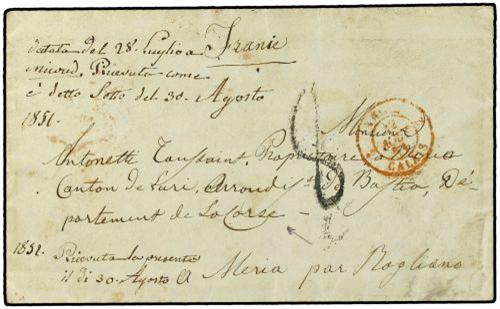 datata del 28. Luglio a Franie
mered. Ricevuta come
è detto Sotto del 30. Agosto
1851.
Monsieur
Antonette Toussaint, Propriétaire a Meria
Canton de Luri, Arrondist. De Bastia, Dé-
partement de La Corse
1851. Ricevuta la presente
il di 30 Agosto A Meria par Rogliano
CALAIS